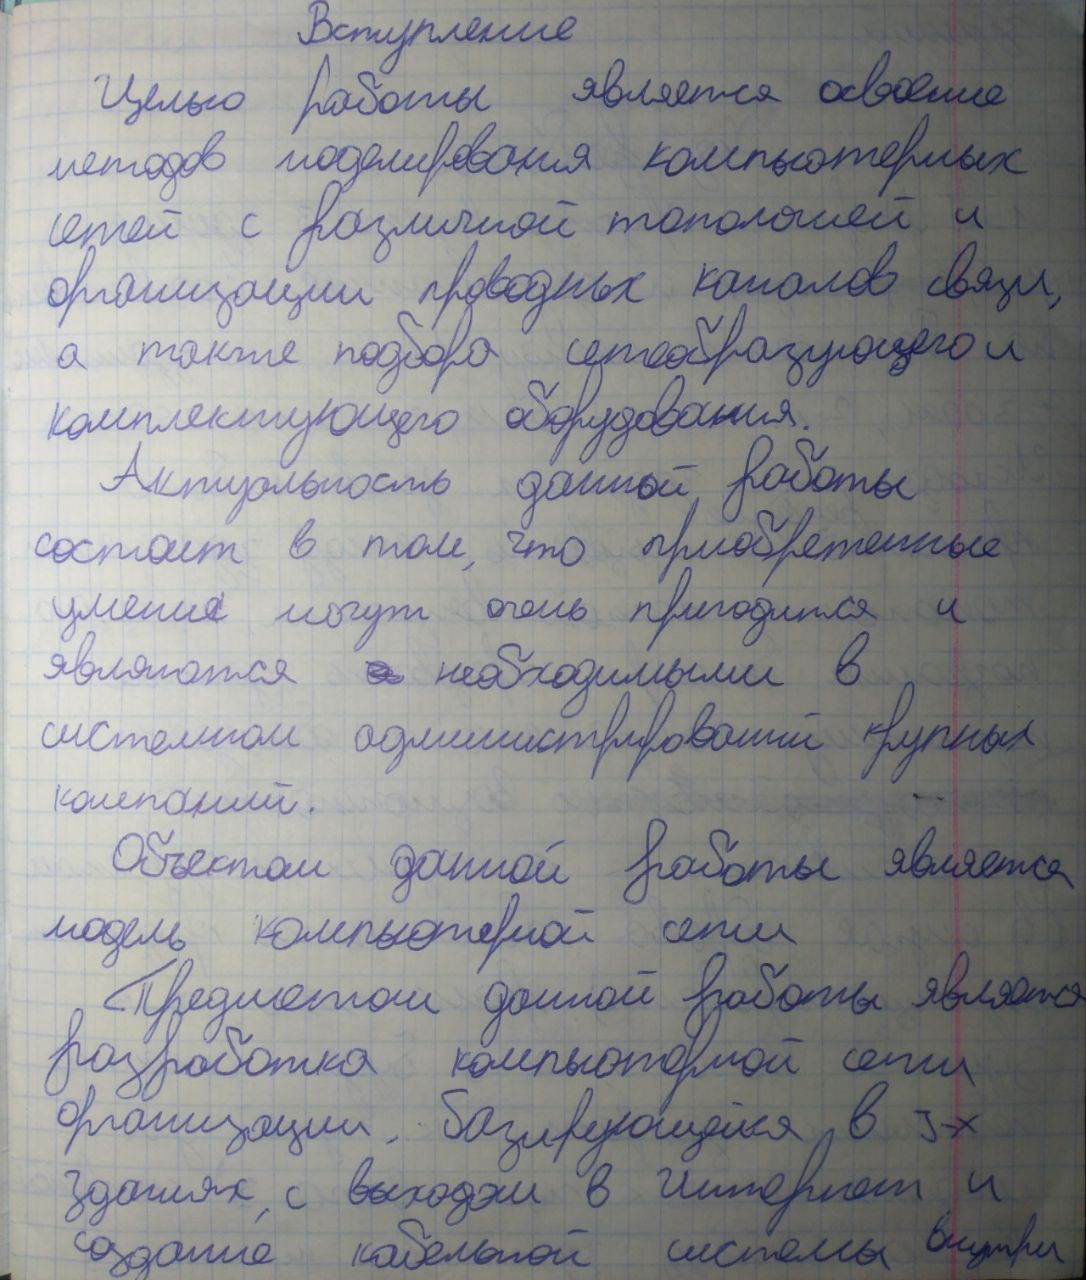 Вступление
Целью работы является освоение
методов моделирования компьютерных
сетей с различной топологией и
организации проводных каналов связи,
а также подбора сетеобразующего и
комплектующего оборудования.
Актуальность данной работы
состоит в том, что приобретенные
умения могут очень пригодится и
являются необходимыми в
системном администрировании крупных
компаний.
Объектом данной работы является
модель компьютерной сети
Предметом данной работы является
разработка компьютерной сети
организации, базирующейся в 3-х
зданиях, с выходом в Интернет и
создание кабельной системы внутри